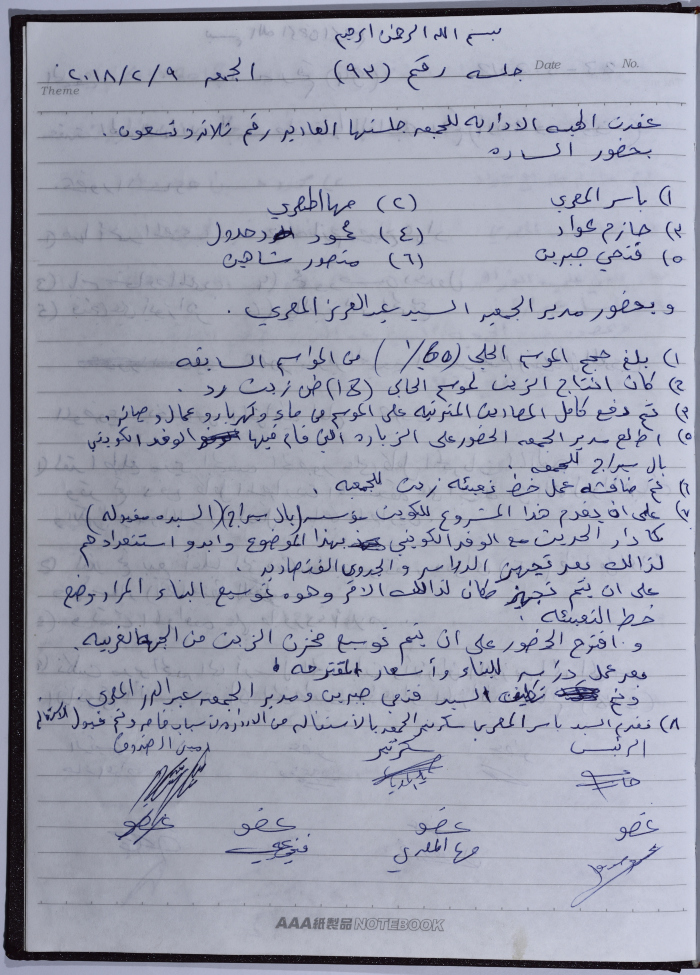 بسم الله الرحمن الرحيم
Date No.
جلسه رقم (٩٣) الجمعه ٢٠١٨/٢/٩
Theme
عقدت الهيئه الاداريه للجمعيه جلستها العاديه رقم ثلاثه وتسعون .
بحضور الساده
١) ياسر المصري ٢) مها المصري
٣) حازم عواد ٤) محمود جدول
٥) فتحي جبرين ٦) منصور شاهين
و بحضور مدير الجمعيه السيد عبد العزيز المصري .
١) بلغ حجم الموسم الحالي من المواسم السابقه
٢) كان انتاج الزيت لموسم الحالي (18) طن زيت رد .
٣) تم دفع كامل المصاريف المترتبه على الموسم من ماء وكهرباء وعمال وصائر .
٥) اطلع مدير الجمعيه الحضور على الزياره التي قام فيها الوفد الكويتي
بال سيراج للجمعيه .
٦) تم مناقشه عمل خط تعبئه زيت للجمعيه .
٧) على ان يقدم هذا المشروع للكويت مؤسسه (بال سيراج) (السيده مقبوله)
كما دار الحديث مع الوفد الكويتي بهذا الموضوع وابدو استعدادهم
لذالك بعد تجهيز الدراسه والجدوى القتصاديه .
على ان يتم تجهيز مكان لذالك الامر وهوه توسيع البناء المراد وضع
خط التعبئه .
و اقترح الحضور على ان يتم توسيع مخزن الزيت من الجهه الغربيه .
بعد عمل دراسه للبناء وأسعار المقترحه .
وتم تكليف السيد فتحي جبرين ومدير الجمعيه عبد العزيز المصري .
٨) تقدم السيد ياسر المصري سكرتير الجمعيه بالاستقاله من الاداره لاسباب خاصه وتم قبول الاستقاله
الرئيس سكرتير امين الصندوق
عضو عضو عضو عضو
مها المصري فتحي
AAA紙製品 NOTEBOOK